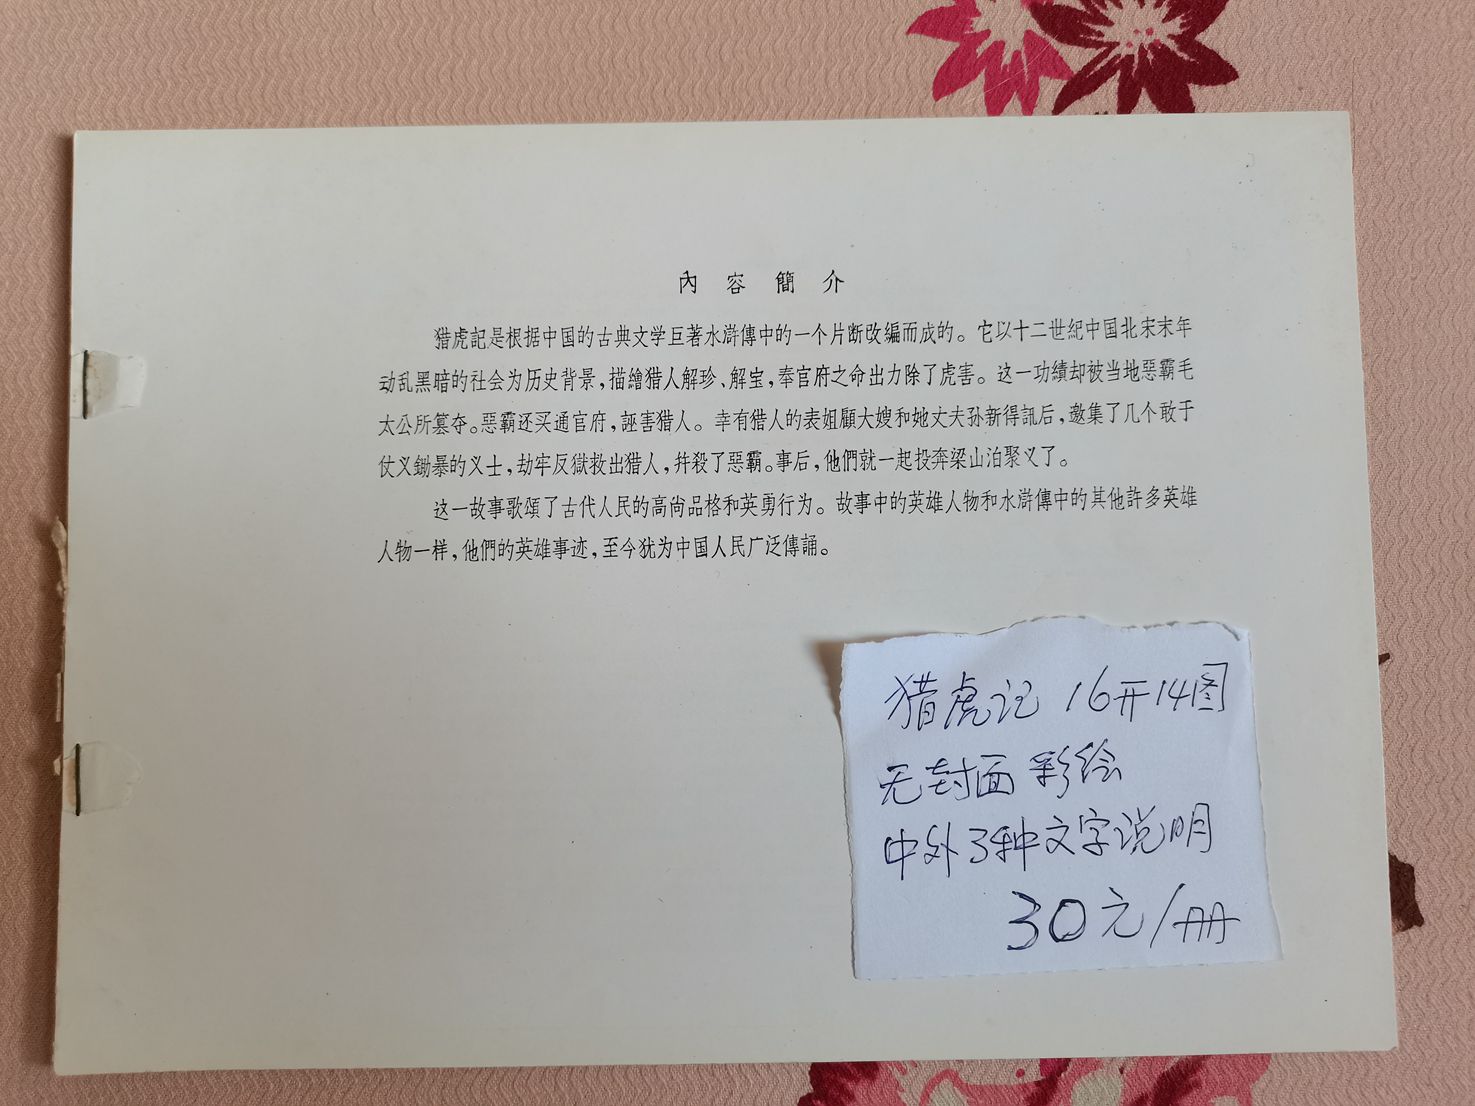 內容簡介
猎虎記是根据中国的古典文学巨著水滸傳中的一个片断改編而成的。它以十二世紀中国北宋末年
动乱黑暗的社会为历史背景，描繪猎人解珍、解宝，奉官府之命出力除了虎害。这一功績却被当地惡霸毛
太公所篡夺。惡霸还买通官府，誣害猎人。幸有猎人的表姐顧大嫂和她丈夫孙新得訊后，邀集了几个敢于
仗义鋤暴的义士，劫牢反獄救出猎人，幷殺了惡霸。事后，他們就一起投奔梁山泊聚义了。
这一故事歌頌了古代人民的高尙品格和英勇行为。故事中的英雄人物和水滸傳中的其他許多英雄
人物一样，他們的英雄事迹，至今犹为中国人民广泛傳誦。
猎虎记 16开14图
无封面 彩绘
中外3种文字说明
30元/册